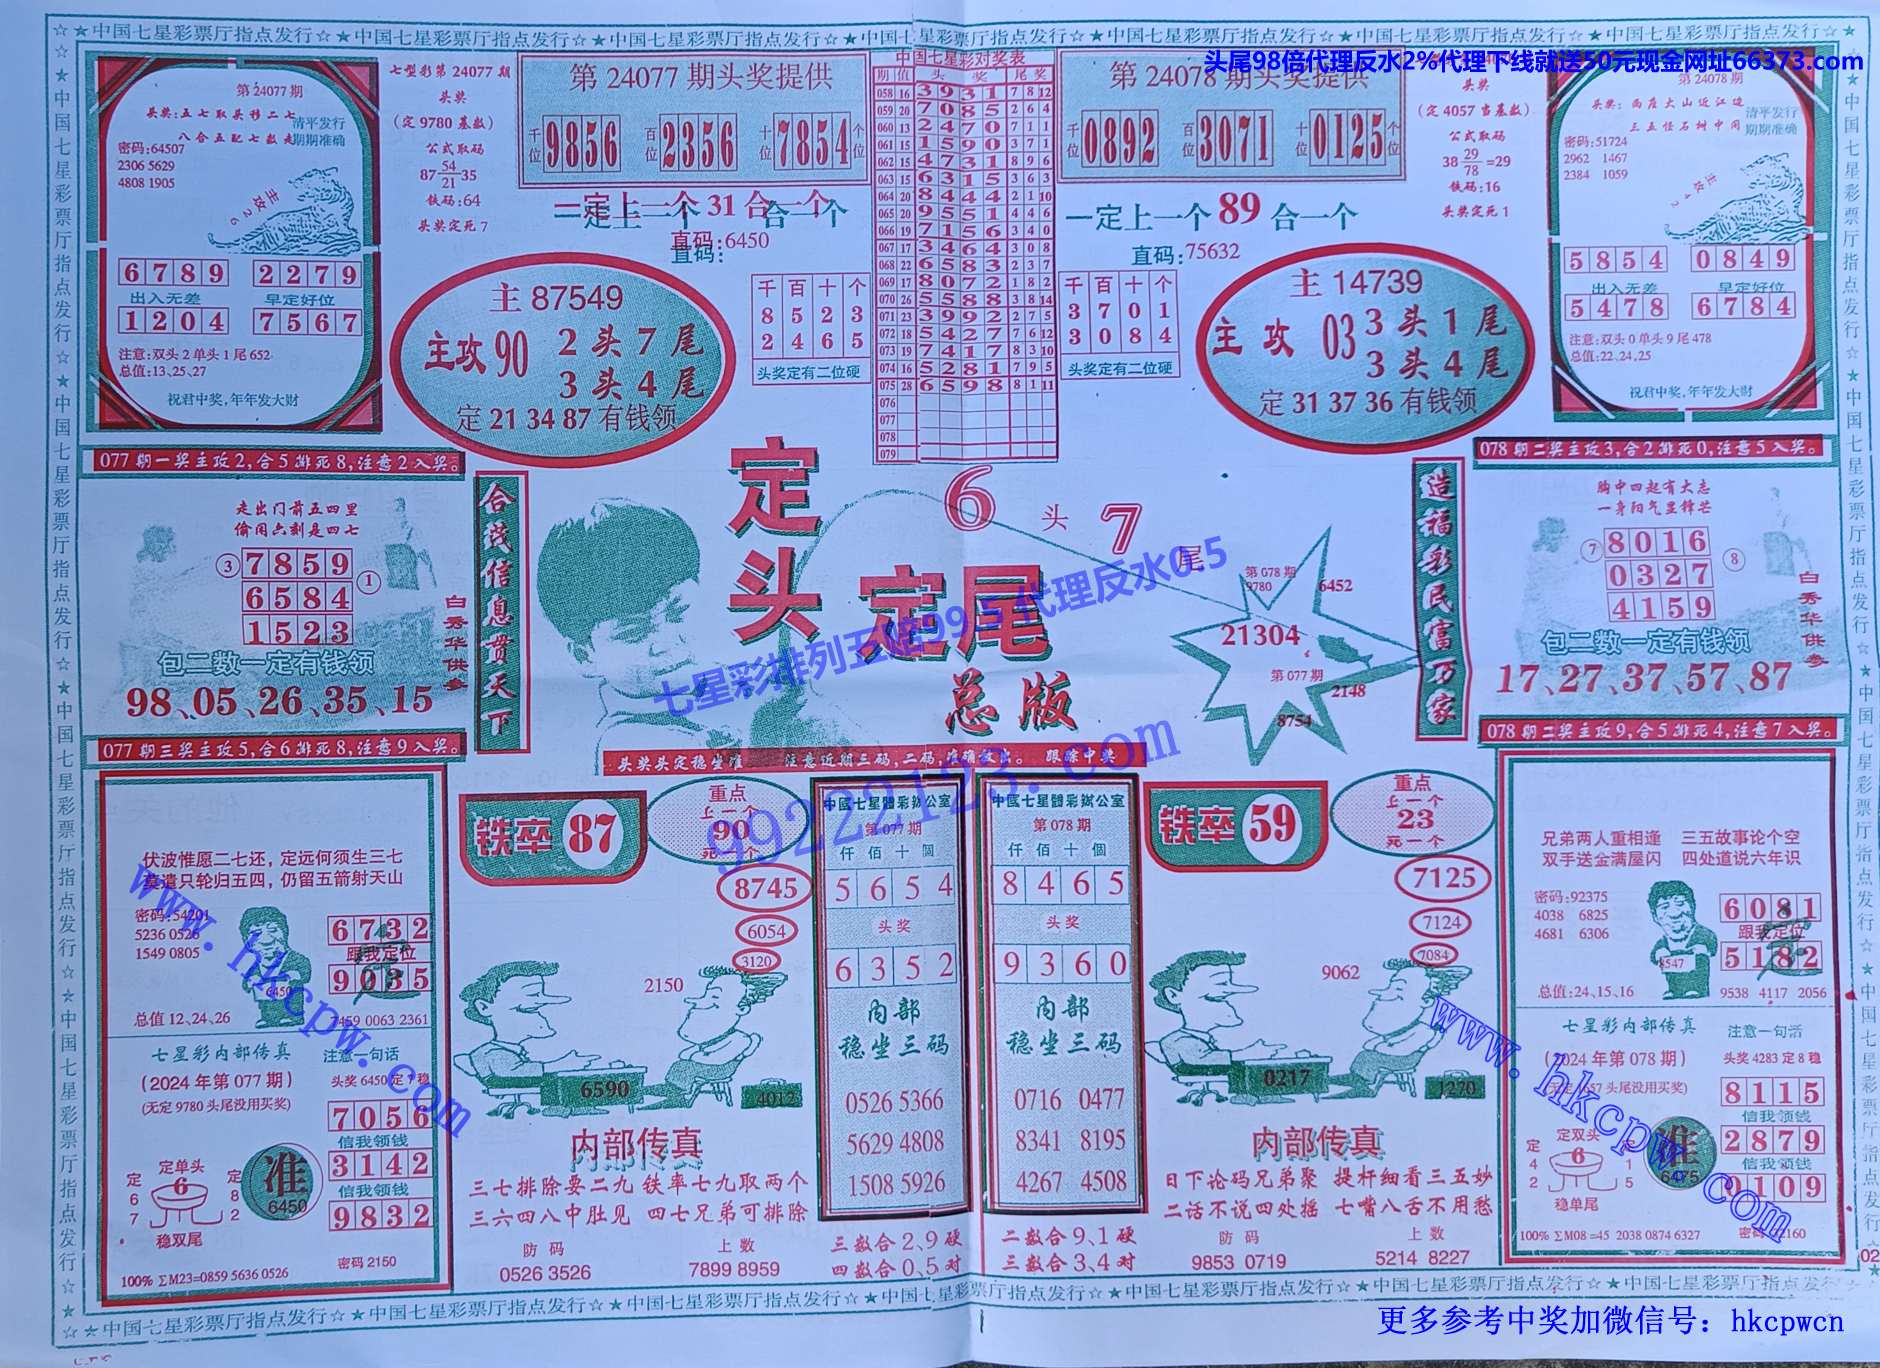 ☆★中国七星彩票厅指点发行☆★中国七星彩票厅指点发行☆★中国七星彩票厅指点发行☆★中国七星彩票厅指点发行
头尾98倍代理反水2%代理下线就送50元现金网址66373.com
第24077期
头奖:五七取头移二七
八合五配七数走
清平发行
期期准确
密码:64507
2306 5629
4808 1905
主攻26
6789 2279
出入无差 早定好位
1204 7567
注意:双头2单头1尾652
总值:13、25、27
祝君中奖,年年发大财
七型彩第24077期
头奖
(定9780基数)
公式取码
87-54/21-35
铁码:64
头奖定死7
第24077期头奖提供
千位 9856 百位 2356 十位 7854 个位
一定上一个31合一个
直码:6450
主87549
主攻90 2头7尾
3头4尾
定21 34 87有钱领
千百十个
8523
2465
头奖定有二位硬
中国七星彩对奖表
期 值 头奖 尾奖
058 16 3931 7 8 12
059 20 7085 2 6 4
060 13 2470 7 1 1
061 15 1590 3 7 1
062 15 4731 8 9 6
063 15 6315 3 6 3
064 20 8444 2 1 10
065 20 9551 4 4 6
066 19 7156 3 4 0
067 17 3464 3 0 8
068 22 6583 2 3 7
069 17 8072 1 8 2
070 26 5588 3 8 14
071 23 3992 2 7 5
072 18 5427 7 6 12
073 19 7417 8 3 10
074 16 5281 7 9 5
075 28 6598 8 1 11
076
077
078
079
第24078期头奖提供
千位 0892 百位 3071 十位 0125 个位
一定上一个89合一个
直码:75632
千百十个
3701
3084
头奖定有二位硬
主14739
主攻03 3头1尾
3头4尾
定31 37 36有钱领
头奖
(定4057当基数)
公式取码
38 29/78 =29
铁码:16
头奖定死1
第24078期
头奖:两座大山近江边
三五怪石树中间
清平发行
期期准确
密码:51724
2962 1467
2384 1059
5854 0849
出入无差 早定好位
5478 6784
注意:双头0单头9尾478
总值:22、24、25
祝君中奖,年年发大财
077期一奖主攻2,合5排死8,注意2入奖。
走出门前五四里
偷闲六刻是四七
③ 7859 ①
6584
1523
包二数一定有钱领
98、05、26、35、15
白秀华供参
077期三奖主攻5,合6排死8,注意9入奖。
合茂信息贯天下
定头
定尾
总版
6头7尾
第078期
9780
6452
21304
第077期
2148
8754
头奖头定稳坐准 注意近期三码,二码,准确放出。 跟踪中奖
造福彩民富万家
078期二奖主攻3,合2排死0,注意5入奖。
胸中四起有大志
一身阳气显锋芒
⑦ 8016 ⑧
0327
4159
包二数一定有钱领
17、27、37、57、87
白秀华供参
078期二奖主攻9,合5排死4,注意7入奖。
七星彩排列五赔99.5代理反水0.5
99222123.com
伏波惟愿二七还,定远何须生三七
莫遣只轮归五四,仍留五箭射天山
密码:54201
5236 0526
1549 0805
6450
6732
跟我定位
9035
总值12、24、26
7459 0063 2361
七星彩内部传真
(2024年第077期)
(无定9780头尾没用买奖)
注意一句话
头奖6450定7稳
7056
信我领钱
3142
信我领钱
9832
定67
定单头
6
稳双尾
定82
准
6450
密码2150
100% ∑M23=0859 5636 0526
铁卒87
重点
上一个
90
死一个
8745
6054
3120
2150
6590
4012
内部传真
三七排除要二九 铁率七九取两个
三六四八中肚见 四七兄弟可排除
防码 上数
0526 3526 7899 8959
中国七星体彩办公室
第077期
仟佰十個
5654
头奖
6352
内部
稳坐三码
0526 5366
5629 4808
1508 5926
三数合2、9硬
四数合0、5对
中国七星体彩办公室
第078期
仟佰十個
8465
头奖
9360
内部
稳坐三码
0716 0477
8341 8195
4267 4508
二数合9、1硬
三数合3、4对
铁卒59
重点
上一个
23
死一个
7125
7124
7084
9062
0217
1270
内部传真
日下论码兄弟聚 提杆细看三五妙
二话不说四处摇 七嘴八舌不用愁
防码 上数
9853 0719 5214 8227
兄弟两人重相逢 三五故事论个空
双手送金满屋闪 四处道说六年识
密码:92375
4038 6825
4681 6306
8547
6081
跟我定位
5182
总值:24、15、16
9538 4117 2056
七星彩内部传真
(2024年第078期)
注意一句话
头奖4283定8稳
8115
信我领钱
2879
信我领钱
0109
定42
定双头
6
稳单尾
15
准
6475
100% ∑M08=45 2038 0874 6327
www.hkcpw.com
www.hkcpw.com
☆★中国七星彩票厅指点发行☆★中国七星彩票厅指点发行☆★中国七星彩票厅指点发行☆★中国七星彩票厅指点发行
更多参考中奖加微信号：hkcpwcn